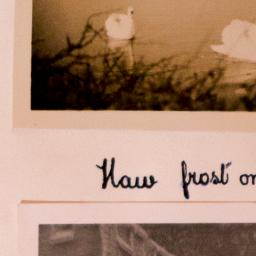 Haw frost on